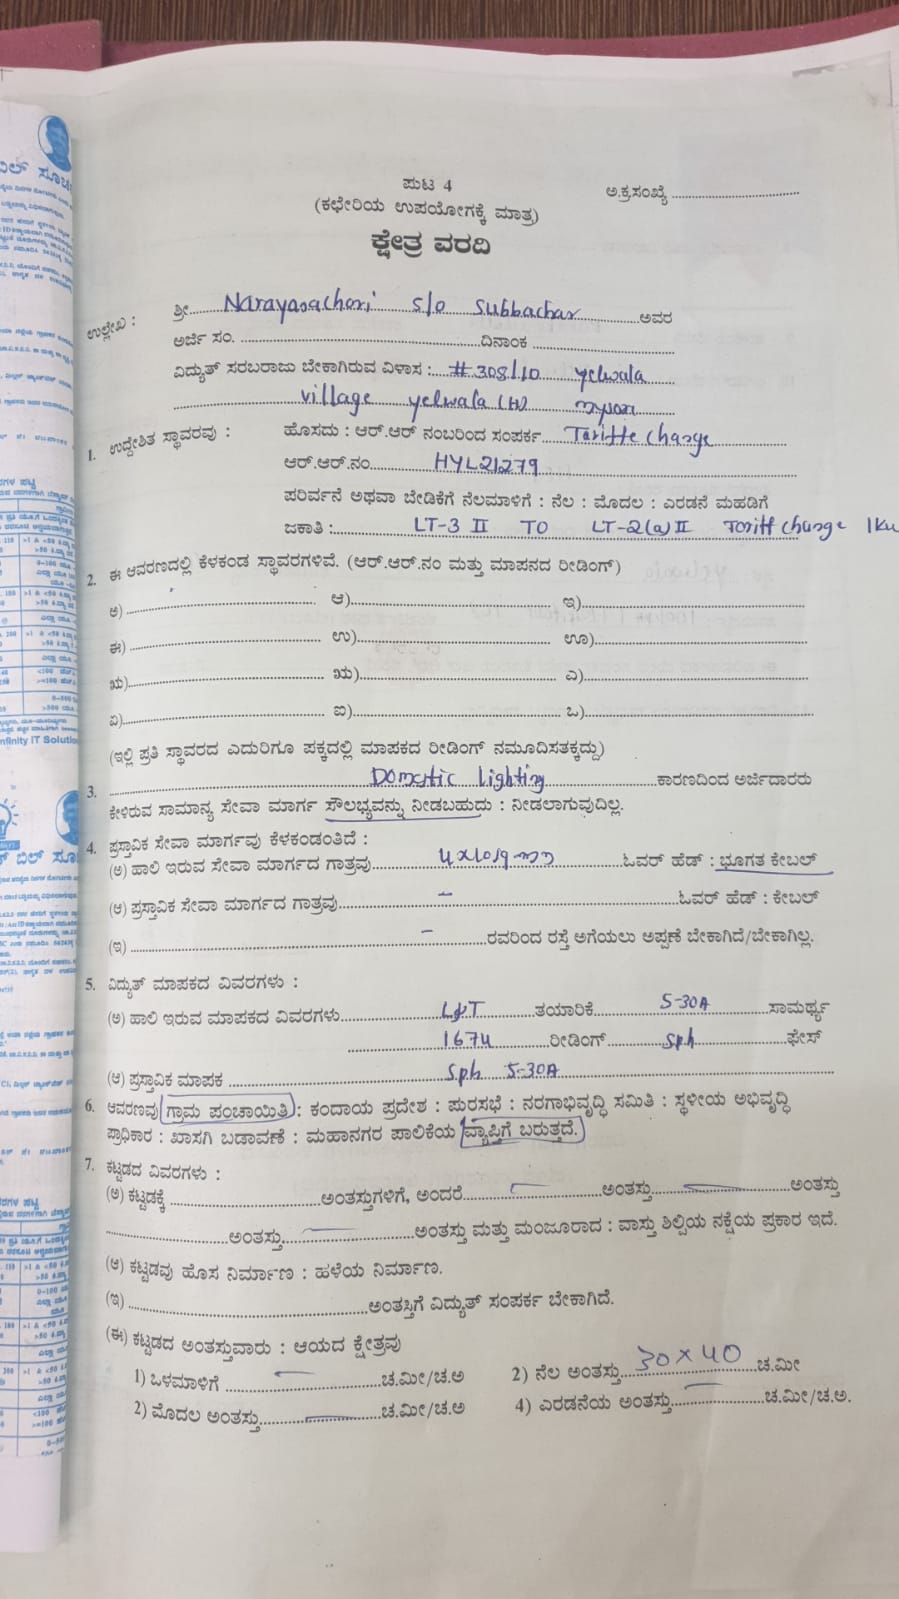 ಪುಟ 4
ಅ.ಕ್ರಸಂಖ್ಯೆ
(ಕಛೇರಿಯ ಉಪಯೋಗಕ್ಕೆ ಮಾತ್ರ)
ಕ್ಷೇತ್ರ ವರದಿ
ಉಲ್ಲೇಖ : ಶ್ರೀ Narayanachari s/o Subbachar ಅವರ
ಅರ್ಜಿ ಸಂ. ದಿನಾಂಕ
ವಿದ್ಯುತ್ ಸರಬರಾಜು ಬೇಕಾಗಿರುವ ವಿಳಾಸ : #308/10 yelwala
village yelwala (H) mysore
1. ಉದ್ದೇಶಿತ ಸ್ಥಾವರವು : ಹೊಸದು : ಆರ್.ಆರ್ ನಂಬರಿಂದ ಸಂಪರ್ಕ Tariffe change
ಆರ್.ಆರ್.ನಂ HYL21279
ಪರಿರ್ವನೆ ಅಥವಾ ಬೇಡಿಕೆಗೆ ನೆಲಮಾಳಿಗೆ : ನೆಲ : ಮೊದಲ : ಎರಡನೆ ಮಹಡಿಗೆ
ಜಕಾತಿ : LT-3 II TO LT-2(a)II Toriff change 1Kw
2. ಈ ಆವರಣದಲ್ಲಿ ಕೆಳಕಂಡ ಸ್ಥಾವರಗಳಿವೆ. (ಆರ್.ಆರ್.ನಂ ಮತ್ತು ಮಾಪನದ ರೀಡಿಂಗ್)
ಅ) ಆ) ಇ)
ಈ) ಉ) ಊ)
ಋ) ಋ) ಎ)
ಏ) ಐ) ಒ)
(ಇಲ್ಲಿ ಪ್ರತಿ ಸ್ಥಾವರದ ಎದುರಿಗೂ ಪಕ್ಕದಲ್ಲಿ ಮಾಪಕದ ರೀಡಿಂಗ್ ನಮೂದಿಸತಕ್ಕದ್ದು)
3. Domestic lighting ಕಾರಣದಿಂದ ಅರ್ಜಿದಾರರು
ಕೇಳಿರುವ ಸಾಮಾನ್ಯ ಸೇವಾ ಮಾರ್ಗ ಸೌಲಭ್ಯವನ್ನು ನೀಡಬಹುದು : ನೀಡಲಾಗುವುದಿಲ್ಲ.
4. ಪ್ರಸ್ತಾವಿಕ ಸೇವಾ ಮಾರ್ಗವು ಕೆಳಕಂಡಂತಿದೆ :
(ಅ) ಹಾಲಿ ಇರುವ ಸೇವಾ ಮಾರ್ಗದ ಗಾತ್ರವು 4x10sqmm ಓವರ್ ಹೆಡ್ : ಭೂಗತ ಕೇಬಲ್
(ಆ) ಪ್ರಸ್ತಾವಿಕ ಸೇವಾ ಮಾರ್ಗದ ಗಾತ್ರವು - ಓವರ್ ಹೆಡ್ : ಕೇಬಲ್
(ಇ) - ರವರಿಂದ ರಸ್ತೆ ಅಗೆಯಲು ಅಪ್ಪಣೆ ಬೇಕಾಗಿದೆ/ಬೇಕಾಗಿಲ್ಲ.
5. ವಿದ್ಯುತ್ ಮಾಪಕದ ವಿವರಗಳು :
(ಅ) ಹಾಲಿ ಇರುವ ಮಾಪಕದ ವಿವರಗಳು L&T ತಯಾರಿಕೆ 5-30A ಸಾಮರ್ಥ್ಯ
1674 ರೀಡಿಂಗ್ Sph ಫೇಸ್
(ಆ) ಪ್ರಸ್ತಾವಿಕ ಮಾಪಕ Sph 5-30A
6. ಆವರಣವು ಗ್ರಾಮ ಪಂಚಾಯಿತಿ : ಕಂದಾಯ ಪ್ರದೇಶ : ಪುರಸಭೆ : ನರಗಾಭಿವೃದ್ಧಿ ಸಮಿತಿ : ಸ್ಥಳೀಯ ಅಭಿವೃದ್ಧಿ
ಪ್ರಾಧಿಕಾರ : ಖಾಸಗಿ ಬಡಾವಣೆ : ಮಹಾನಗರ ಪಾಲಿಕೆಯ ವ್ಯಾಪ್ತಿಗೆ ಬರುತ್ತದೆ.
7. ಕಟ್ಟಡದ ವಿವರಗಳು :
(ಅ) ಕಟ್ಟಡಕ್ಕೆ ಅಂತಸ್ತುಗಳಿಗೆ, ಅಂದರೆ ಅಂತಸ್ತು ಅಂತಸ್ತು
ಅಂತಸ್ತು ಅಂತಸ್ತು ಮತ್ತು ಮಂಜೂರಾದ : ವಾಸ್ತು ಶಿಲ್ಪಿಯ ನಕ್ಷೆಯ ಪ್ರಕಾರ ಇದೆ.
(ಆ) ಕಟ್ಟಡವು ಹೊಸ ನಿರ್ಮಾಣ : ಹಳೆಯ ನಿರ್ಮಾಣ.
(ಇ) ಅಂತಸ್ತಿಗೆ ವಿದ್ಯುತ್ ಸಂಪರ್ಕ ಬೇಕಾಗಿದೆ.
(ಈ) ಕಟ್ಟಡದ ಅಂತಸ್ತುವಾರು : ಆಯದ ಕ್ಷೇತ್ರವು
1) ಒಳಮಾಳಿಗೆ ಚ.ಮೀ/ಚ.ಅ 2) ನೆಲ ಅಂತಸ್ತು 30 x 40 ಚ.ಮೀ
2) ಮೊದಲ ಅಂತಸ್ತು ಚ.ಮೀ/ಚ.ಅ 4) ಎರಡನೆಯ ಅಂತಸ್ತು ಚ.ಮೀ/ಚ.ಅ.